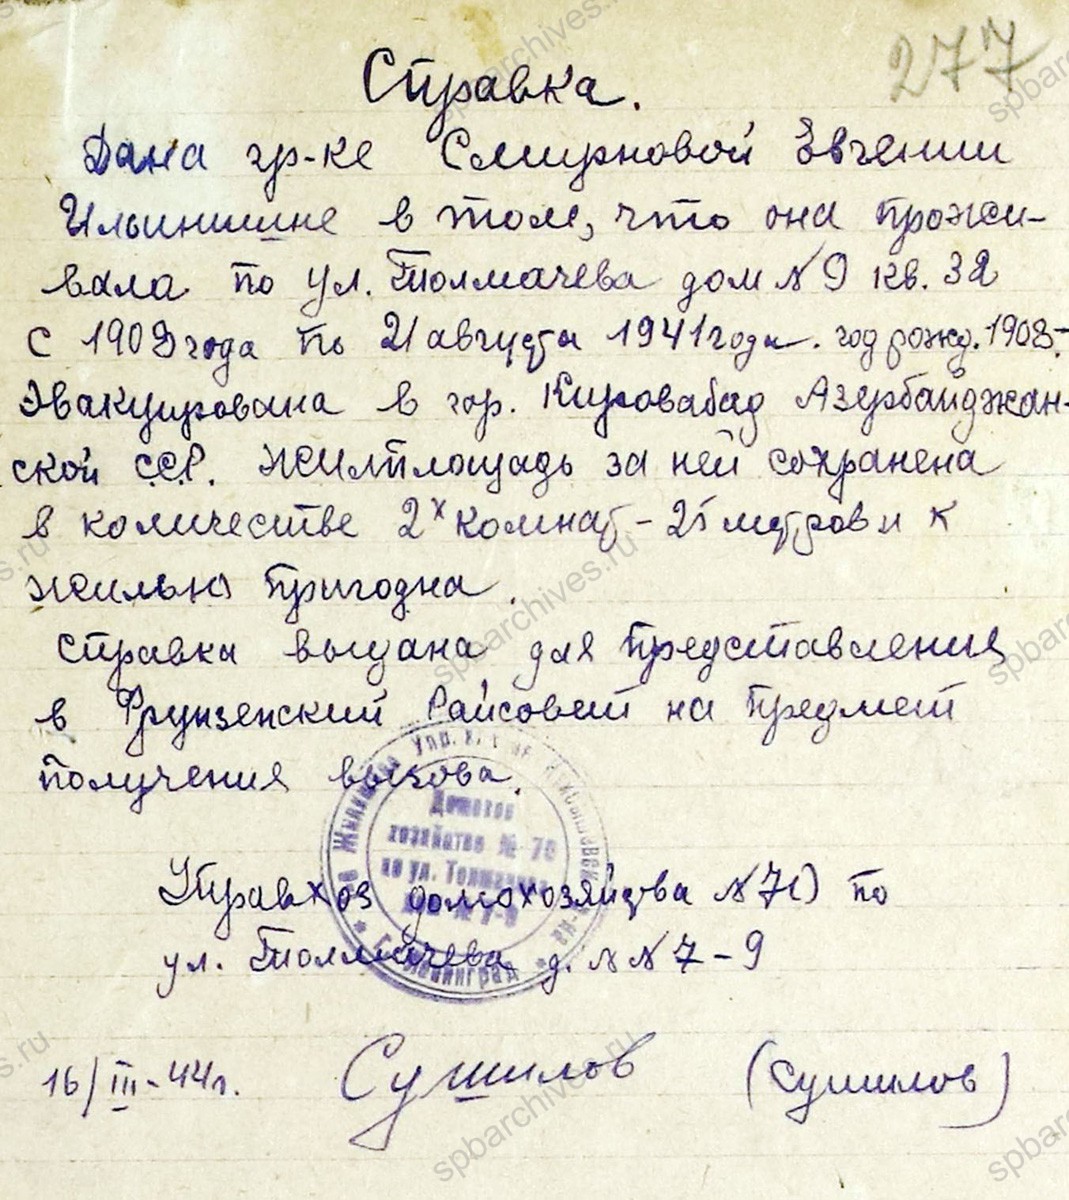 277
Справка.
Дана гр-ке Смирновой Евгении
Ильинишне в том, что она прожи-
вала по ул. Толмачева дом №9 кв. 32
с 1909 года по 21 августа 1941 года. год рожд. 1908.
Эвакуирована в гор. Кировабад Азербайджан-
ской ССР. Жилплощадь за ней сохранена
в количестве 2х комнат - 25 метров и к
жилью пригодна.
Справка выдана для представления
в Фрунзенский Райсовет на предмет
получения вызова.
Домовое
хозяйство № 70
по ул. Толмачева
№ 7-9
Ленинград
Управхоз домохозяйства №70 по
ул. Толмачева д. №№ 7-9
16/III-44г. Сушилов (Сушилов)
spbarchives.ru